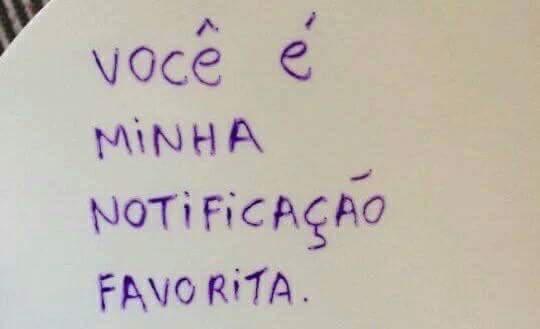 VOCÊ É
MINHA
NOTIFICAÇÃO
FAVORITA.